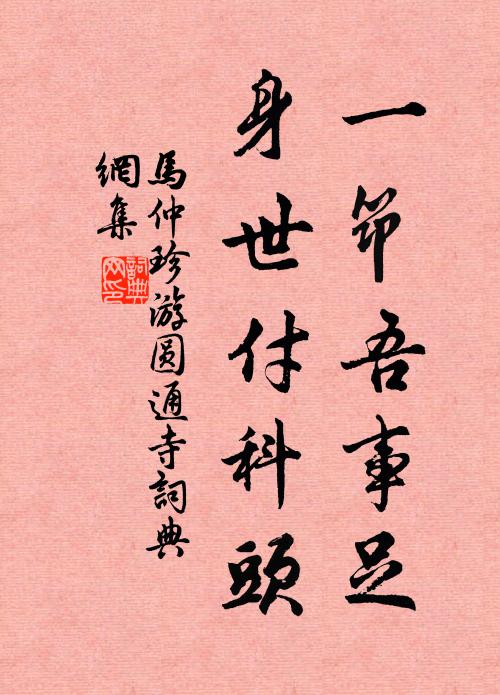 一筇吾事足
身世付科頭
馬仲珍游圆通寺詞典
網集
詞典
网印